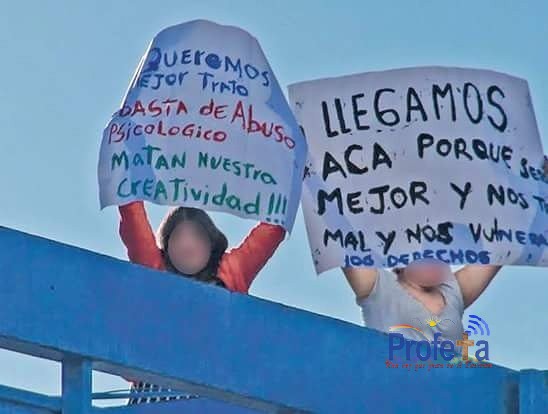 QUEREMOS
MEJOR TRATO
BASTA DE ABUSO
PSICOLOGICO
MATAN NUESTRA
CREATIVIDAD!!!
LLEGAMOS
ACA PORQUE
MEJOR Y NOS
MAL Y NOS
DERECHOS
Profeta